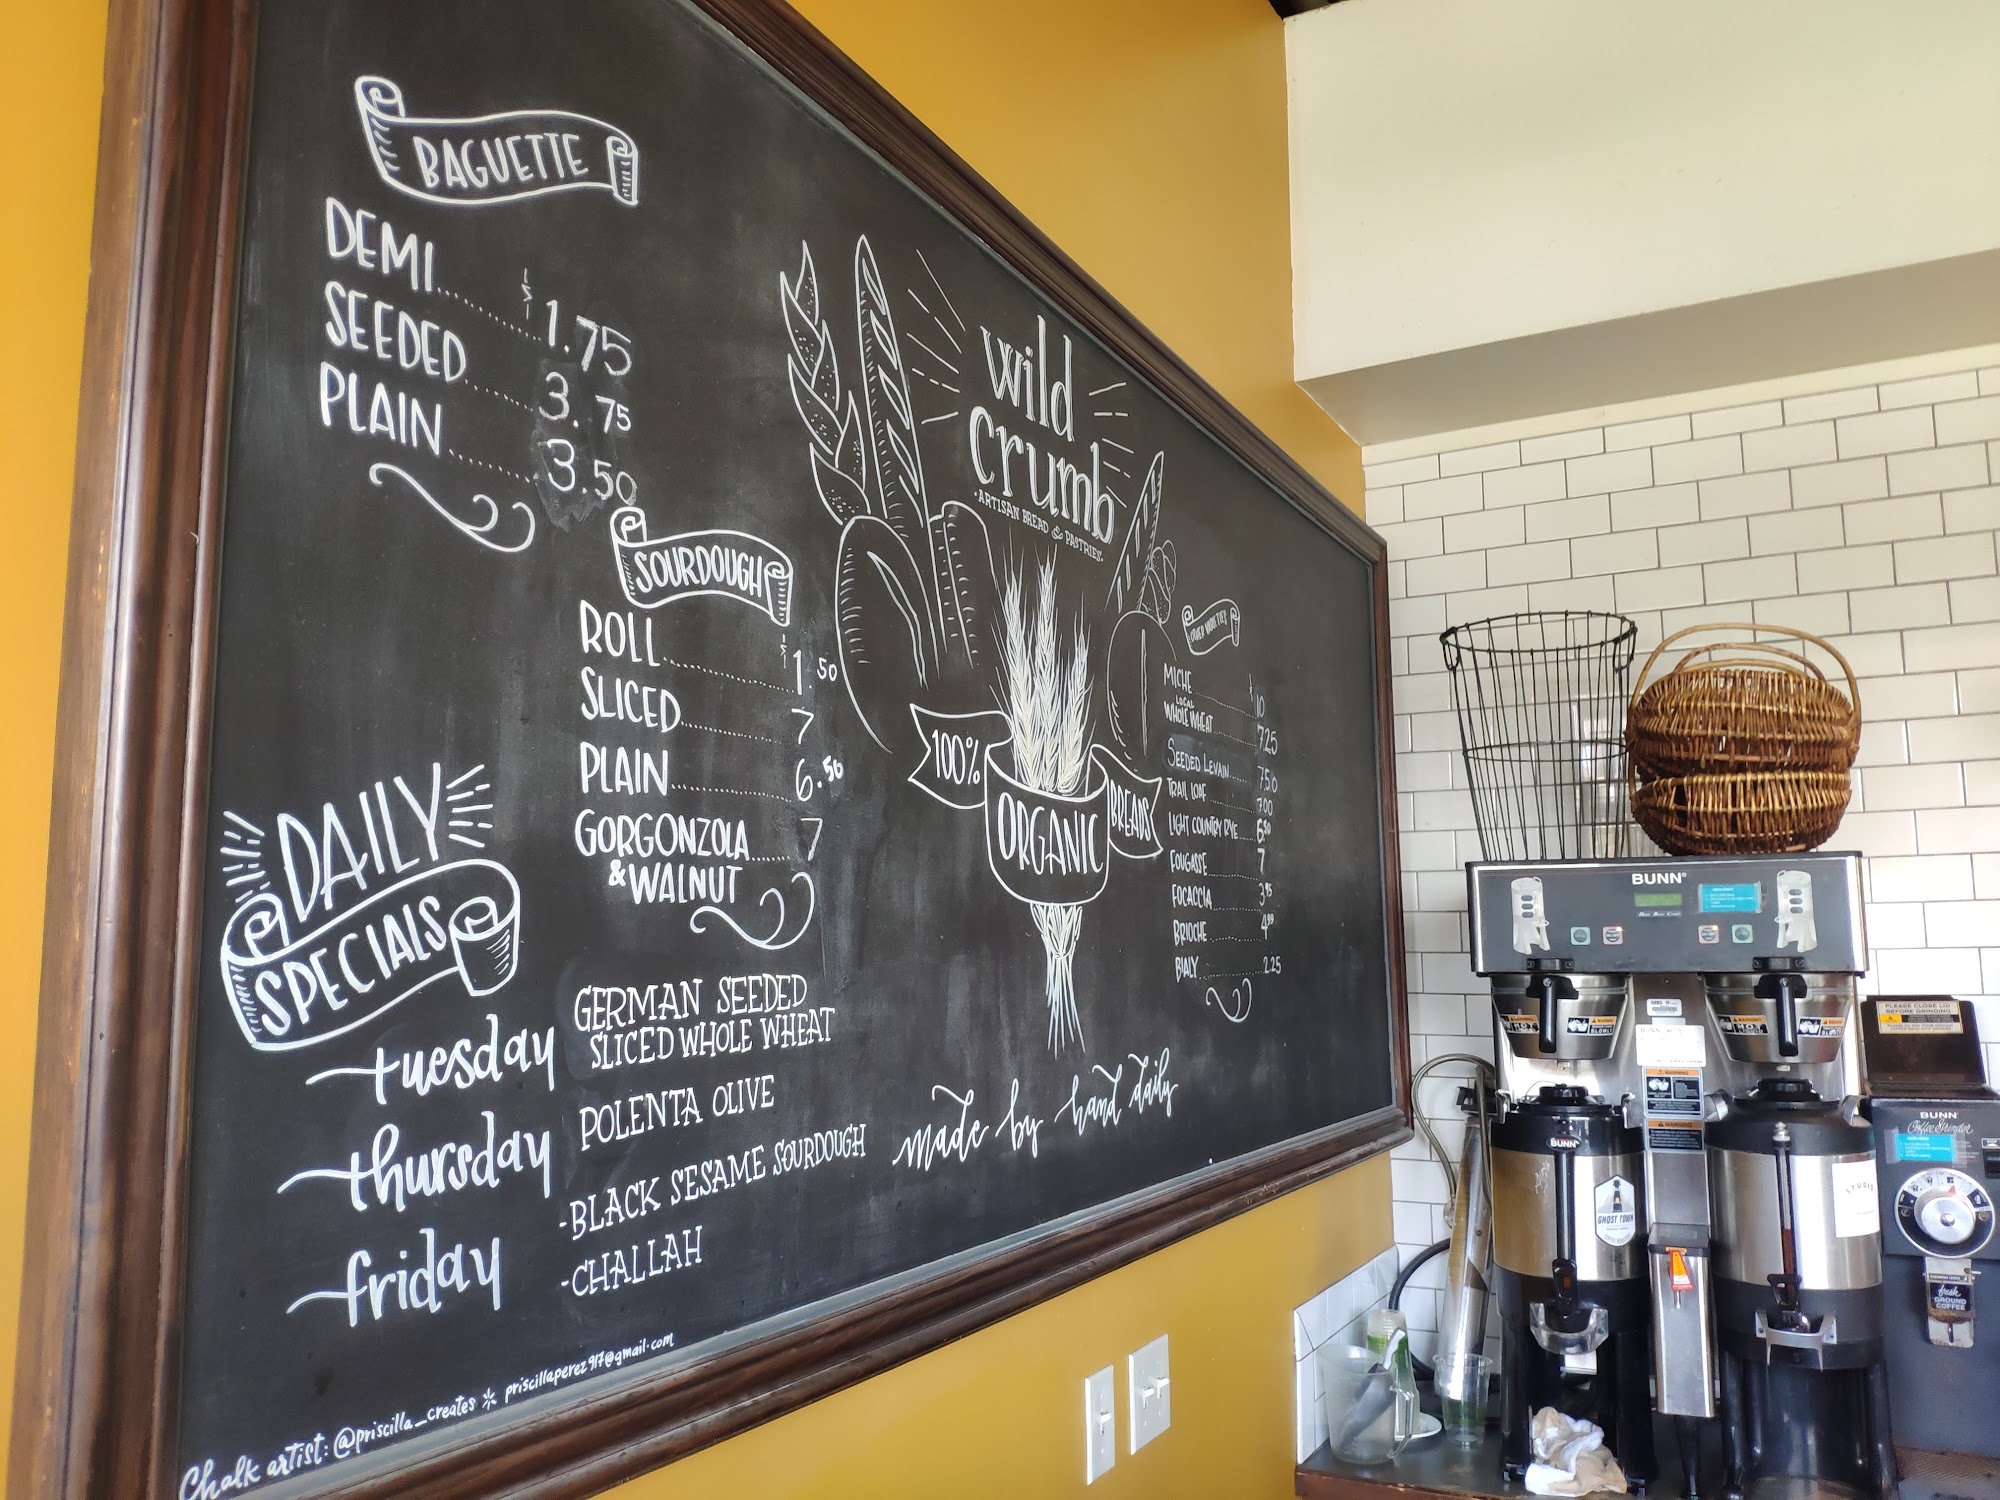 BAGUETTE
DEMI $1.75
SEEDED 3.75
PLAIN 3.50
SOURDOUGH
ROLL $1.50
SLICED 7
PLAIN 6.50
GORGONZOLA 7
& WALNUT
DAILY
SPECIALS
tuesday GERMAN SEEDED
SLICED WHOLE WHEAT
thursday POLENTA OLIVE
friday -BLACK SESAME SOURDOUGH
-CHALLAH
Chalk artist: @priscilla_creates priscillaperez917@gmail.com
wild
crumb
·ARTISAN BREAD & PASTRIES·
100% ORGANIC BREADS
made by hand daily
OTHER VARIETIES
MICHE $10
LOCAL
WHOLE WHEAT 7.25
SEEDED LEVAIN 7.50
TRAIL LOAF 7.00
LIGHT COUNTRY RYE 6.50
FOUGASSE 7
FOCACCIA 3.95
BRIOCHE 4.99
BIALY 2.25
BUNN®
WARNING
HOT
WARNING
WARNING
HOT
WARNING
WARNING
WARNING
BUNN
GHOST TOWN
STUDIO
PLEASE CLOSE LID
BEFORE GRINDING
BUNN
Coffee Grinder
fresh
GROUND
COFFEE